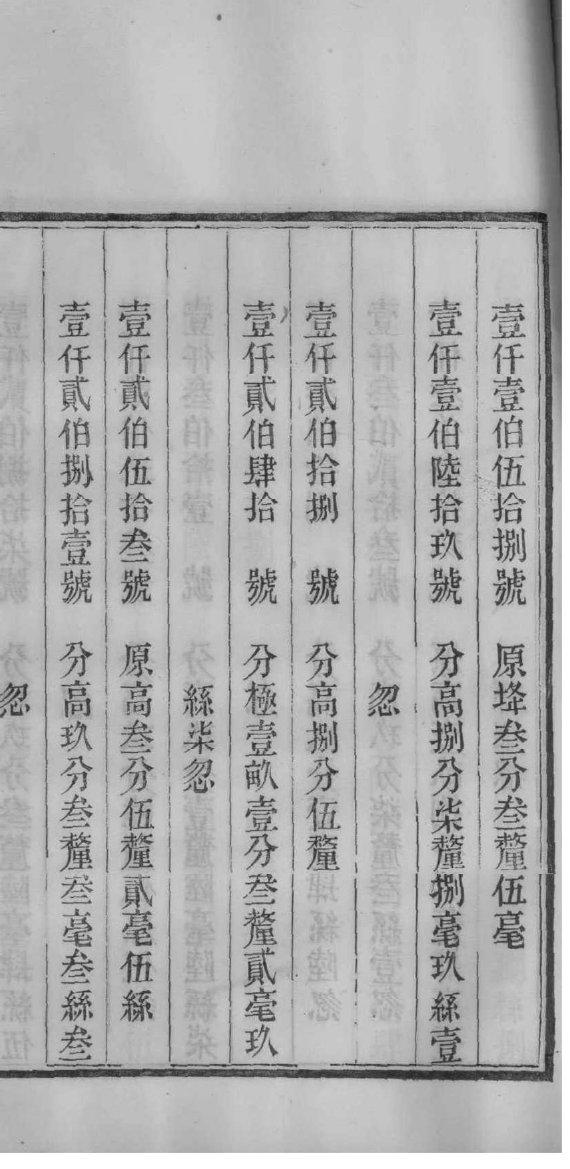 壹仟壹伯伍拾捌號　原埄叁分叁釐伍毫
壹仟壹伯陸拾玖號　分高捌分柒釐捌毫玖絲壹
忽
壹仟貳伯拾捌　號　分高捌分伍釐
壹仟貳伯肆拾　號　分極壹畝壹分叁釐貳毫玖
絲柒忽
壹仟貳伯伍拾叁號　原高叁分伍釐貳毫伍絲
壹仟貳伯捌拾壹號　分高玖分叁釐叁毫叁絲叁
忽